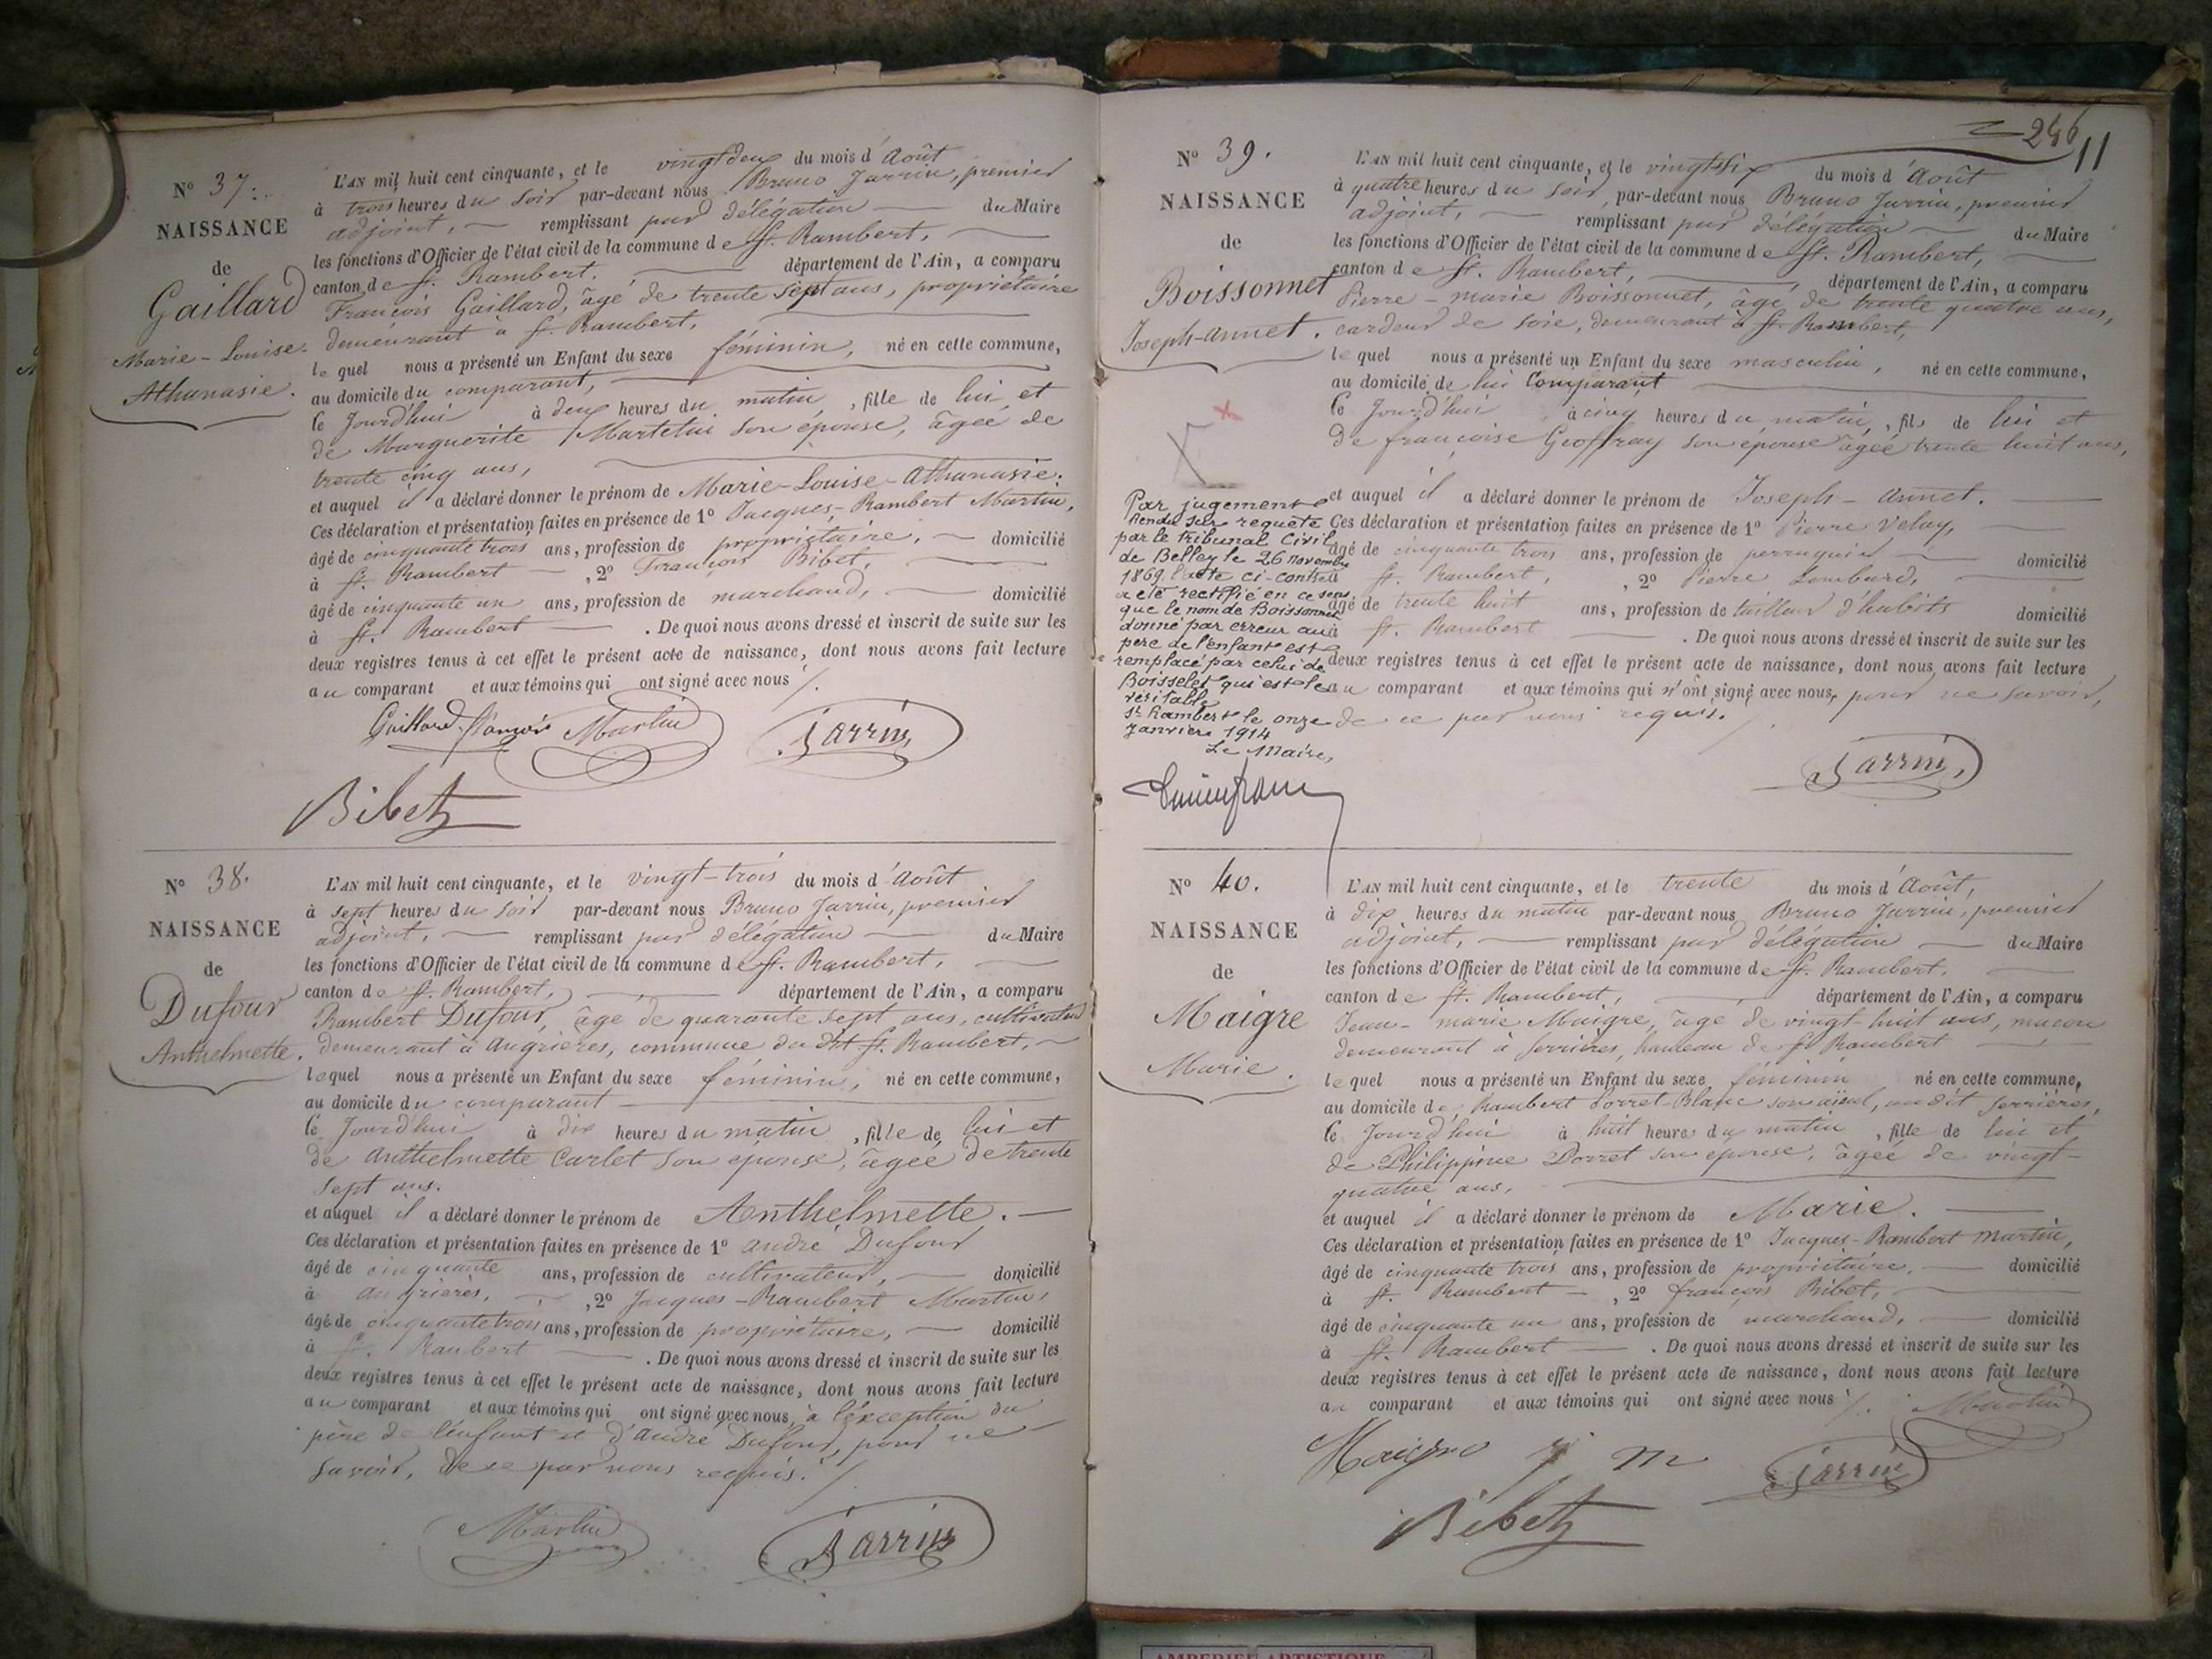 N° 37.
NAISSANCE
de
Gaillard
Marie-Louise-
Athanasie.
L'AN mil huit cent cinquante, et le vingt deux du mois d'Août
à trois heures du soir par-devant nous Bruno Jarrin, premier
adjoint, remplissant par délégation du Maire
les fonctions d'Officier de l'état civil de la commune de St. Rambert,
canton de St. Rambert, département de l'Ain, a comparu
François Gaillard, âgé de trente sept ans, propriétaire
demeurant à St. Rambert,
lequel nous a présenté un Enfant du sexe féminin, né en cette commune,
au domicile du comparant,
le jourd'hui à deux heures du matin, fille de lui et
de Marguerite Martelin son épouse, âgée de
trente cinq ans,
et auquel il a déclaré donner le prénom de Marie-Louise-Athanasie.
Ces déclaration et présentation faites en présence de 1° Jacques-Rambert Martin,
âgé de cinquante trois ans, profession de propriétaire, domicilié
à St. Rambert, 2° François Bibet,
âgé de cinquante un ans, profession de marchand, domicilié
à St. Rambert. De quoi nous avons dressé et inscrit de suite sur les
deux registres tenus à cet effet le présent acte de naissance, dont nous avons fait lecture
au comparant et aux témoins qui ont signé avec nous /.
Gaillard françois Martin Jarrin
Bibet
N° 38.
NAISSANCE
de
Dufour
Anthelmette.
L'AN mil huit cent cinquante, et le vingt-trois du mois d'Août
à sept heures du soir par-devant nous Bruno Jarrin, premier
adjoint, remplissant par délégation du Maire
les fonctions d'Officier de l'état civil de la commune de St. Rambert,
canton de St. Rambert, département de l'Ain, a comparu
Rambert Dufour, âgé de quarante sept ans, cultivateur
demeurant à angrières, commune du dit St. Rambert,
lequel nous a présenté un Enfant du sexe féminin, né en cette commune,
au domicile du comparant
le jourd'hui à dix heures du matin, fille de lui et
de anthelmette Carlet son épouse, âgée de trente
sept ans.
et auquel il a déclaré donner le prénom de Anthelmette.
Ces déclaration et présentation faites en présence de 1° andré Dufour
âgé de cinquante ans, profession de cultivateur, domicilié
à angrières, 2° Jacques-Rambert Martin,
âgé de cinquante trois ans, profession de propriétaire, domicilié
à St. Rambert. De quoi nous avons dressé et inscrit de suite sur les
deux registres tenus à cet effet le présent acte de naissance, dont nous avons fait lecture
au comparant et aux témoins qui ont signé avec nous, à l'exception du
père de l'enfant et d'andré Dufour, pour ne
savoir, de ce par nous requis. /
Martin Jarrin
246
11
N° 39.
NAISSANCE
de
Boissonnet
Joseph-annet.
L'AN mil huit cent cinquante, et le vingt six du mois d'Août
à quatre heures du soir, par-devant nous Bruno Jarrin, premier
adjoint, remplissant par délégation du Maire
les fonctions d'Officier de l'état civil de la commune de St. Rambert,
canton de St. Rambert, département de l'Ain, a comparu
Pierre-marie Boissonnet, âgé de trente quatre ans,
cardeur de soie, demeurant à St. Rambert,
lequel nous a présenté un Enfant du sexe masculin, né en cette commune,
au domicile de lui Comparant
le jourd'hui à cinq heures du matin, fils de lui et
de françoise Geoffray son épouse âgée trente huit ans,
et auquel il a déclaré donner le prénom de Joseph-annet.
Ces déclaration et présentation faites en présence de 1° Pierre Velay,
âgé de cinquante trois ans, profession de perruquier domicilié
à St. Rambert, 2° Pierre Lombard,
âgé de trente huit ans, profession de tailleur d'habits domicilié
à St. Rambert. De quoi nous avons dressé et inscrit de suite sur les
deux registres tenus à cet effet le présent acte de naissance, dont nous avons fait lecture
au comparant et aux témoins qui n'ont signé avec nous, pour ne savoir,
de ce par nous requis.
Jarrin
Par jugement
Rendu sur requête
par le tribunal Civil
de Belley le 26 novembre
1869, l'acte ci-contre
a été rectifié en ce sens
que le nom de Boissonnet
donné par erreur au
père de l'enfant est
remplacé par celui de
Boisselet qui est le
véritable
St Rambert le onze
Janvier 1914
Le Maire,
N° 40.
NAISSANCE
de
Maigre
Marie.
L'AN mil huit cent cinquante, et le trente du mois d'Août,
à dix heures du matin par-devant nous Bruno Jarrin, premier
adjoint, remplissant par délégation du Maire
les fonctions d'Officier de l'état civil de la commune de St. Rambert,
canton de St. Rambert, département de l'Ain, a comparu
Jean-marie Maigre, âgé de vingt-huit ans, maçon
demeurant à Serrières, hameau de St Rambert
lequel nous a présenté un Enfant du sexe féminin né en cette commune,
au domicile de Rambert Dorret-Blanc son aïeul, au dit Serrières,
le jourd'hui à huit heures du matin, fille de lui et
de Philippine Dorret son épouse, âgée de vingt-
quatre ans,
et auquel il a déclaré donner le prénom de Marie.
Ces déclaration et présentation faites en présence de 1° Jacques-Rambert martin,
âgé de cinquante trois ans, profession de propriétaire, domicilié
à St. Rambert, 2° françois Bibet,
âgé de cinquante un ans, profession de marchand, domicilié
à St. Rambert. De quoi nous avons dressé et inscrit de suite sur les
deux registres tenus à cet effet le présent acte de naissance, dont nous avons fait lecture
au comparant et aux témoins qui ont signé avec nous /. Martin
Maigre j m Jarrin
Bibet
AMBERIEU ARTISTIQUE